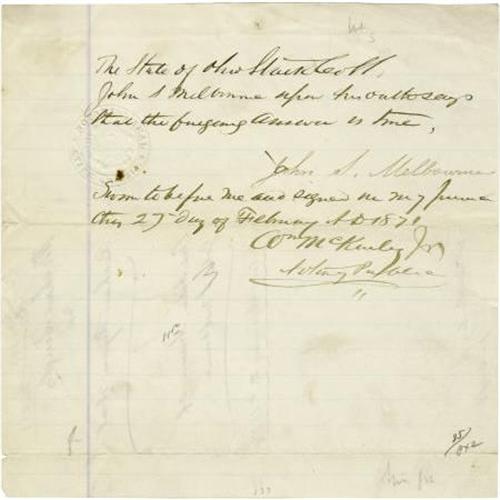 The State of Ohio Stark Co SS.
John S Melbourne upon his oath says
that the foregoing answer is true,
John S. Melbourne
Sworn to before me and signed in my presence
this 27 day of February A D 1871
Wm McKinley Jr
Notary Public